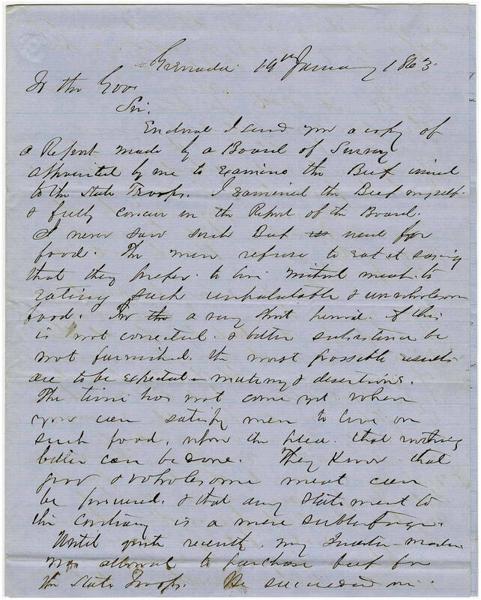 Grenada 19th January 1863
To the Gov
Sir.
Enclosed I send you a copy of
a Report made by a Board of Survey
appointed by me to examine the Beef issued
to the State Troops. I examined the Beef myself
& fully concur in the Report of the Board.
I never saw such Beef is used for
food. The men refuse to eat it saying
that they prefer to live without meat to
eating such unpalatable & unwholesome
food. In the a very short period. If this
is not corrected & better substance be
not furnished the most possible results
are to be expected – mutiny & desertions.
The time has not come yet when
you can satisfy men to live on
such food, upon the plea that nothing
better can be done. They know that
good & wholesome meat can
be procured, & that any statement to
the contrary is a mere subterfuge.
Until quite recently, my Quarter-master
was allowed to purchase beef for
the State Troops. He succeeded in